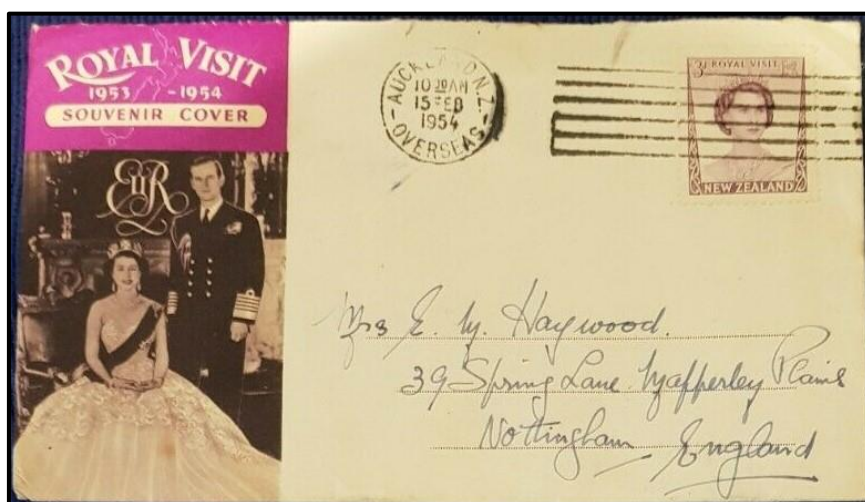 ROYAL VISIT
1953 - 1954
SOUVENIR COVER
EIIR
AUCKLAND N.Z.
10 30 AM
15 FEB
1954
OVERSEAS
3D ROYAL VISIT
NEW ZEALAND
Mrs E. M. Haywood.
39 Spring Lane Mapperley Plains
Nottingham
England